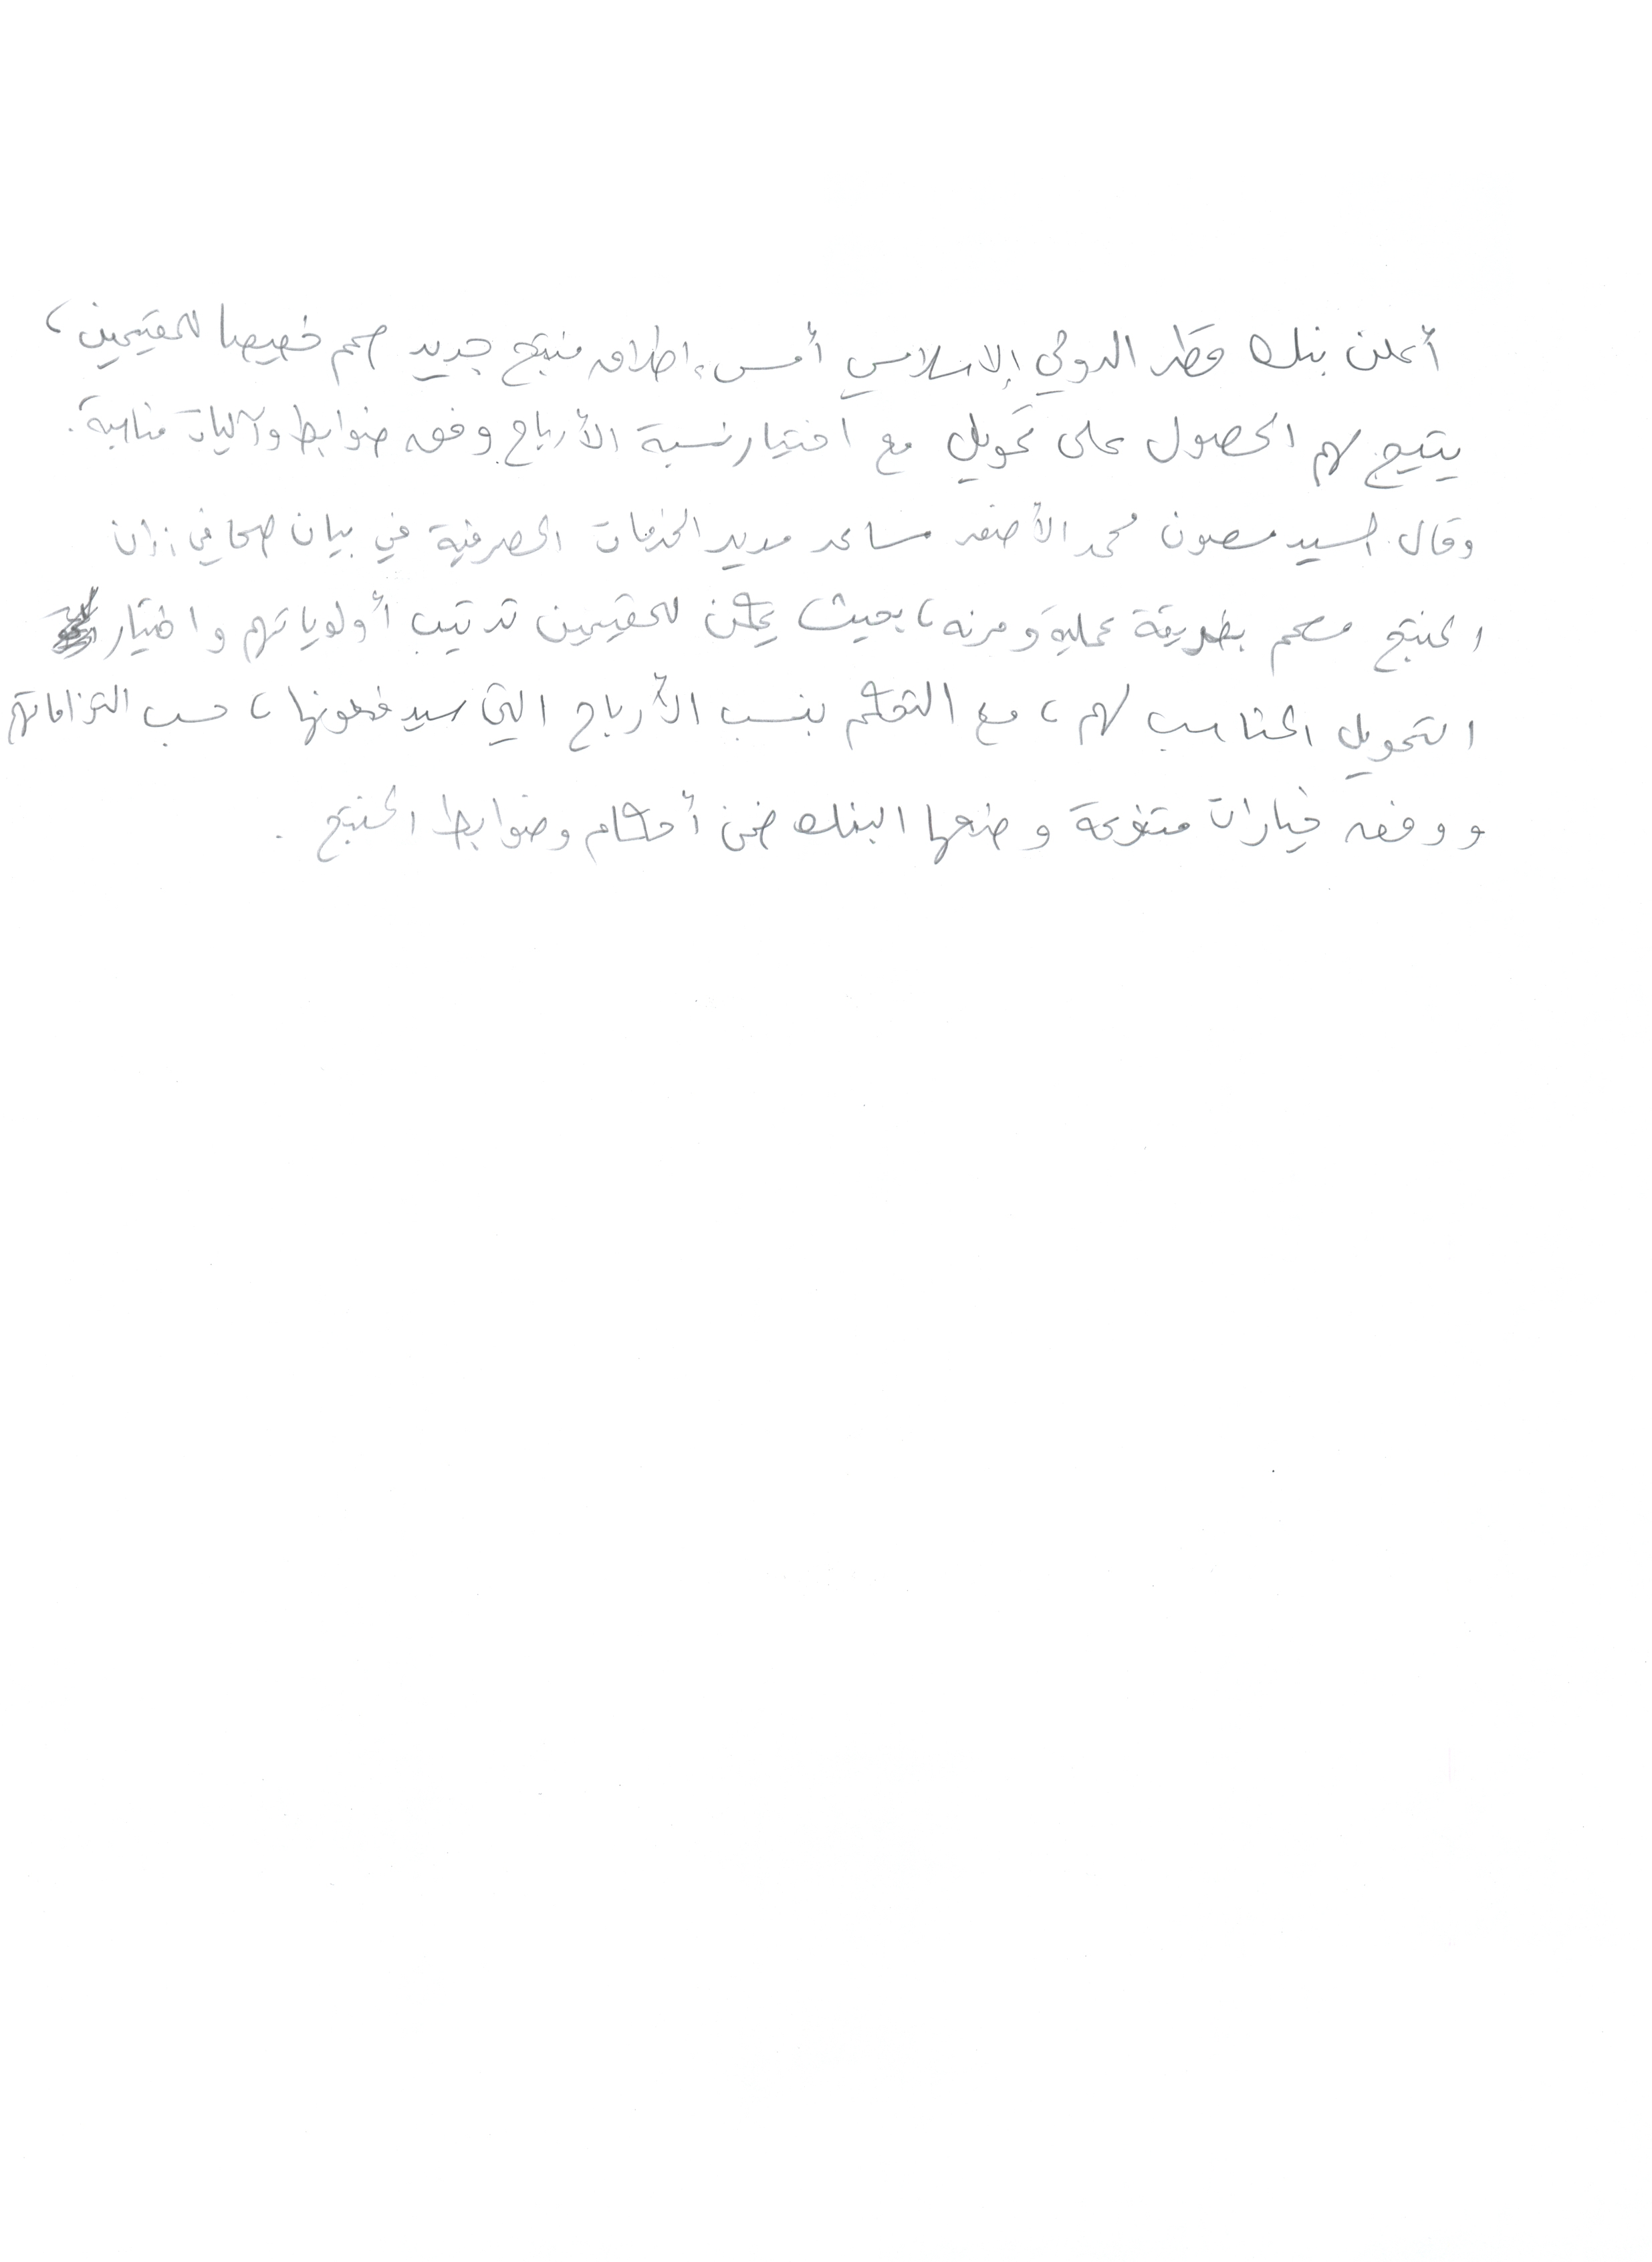 أعلن بنك قطر الدولي الإسلامي أمس، اطلاق منتج جديد صمم خصيصا للمقيمين،
يتيح لهم الحصول على تمويل مع اختيار نسبة الأرباح وفق ضوابط وآليات مناسبة.
وقال السيد مصون محمد الأصفر مساعد مدير الخدمات المصرفية في بيان صحافي: إن
المنتج مصمم بطريقة عملية ومرنه، بحيث يمكن للمقيمين ترتيب أولوياتهم واختيار
التمويل المناسب لهم، مع التحكم بنسب الأرباح التي سيدفعونها، حسب التزاماتهم
ووفق خيارات متنوعة وضعها البنك ضمن أحكام وضوابط المنتج.